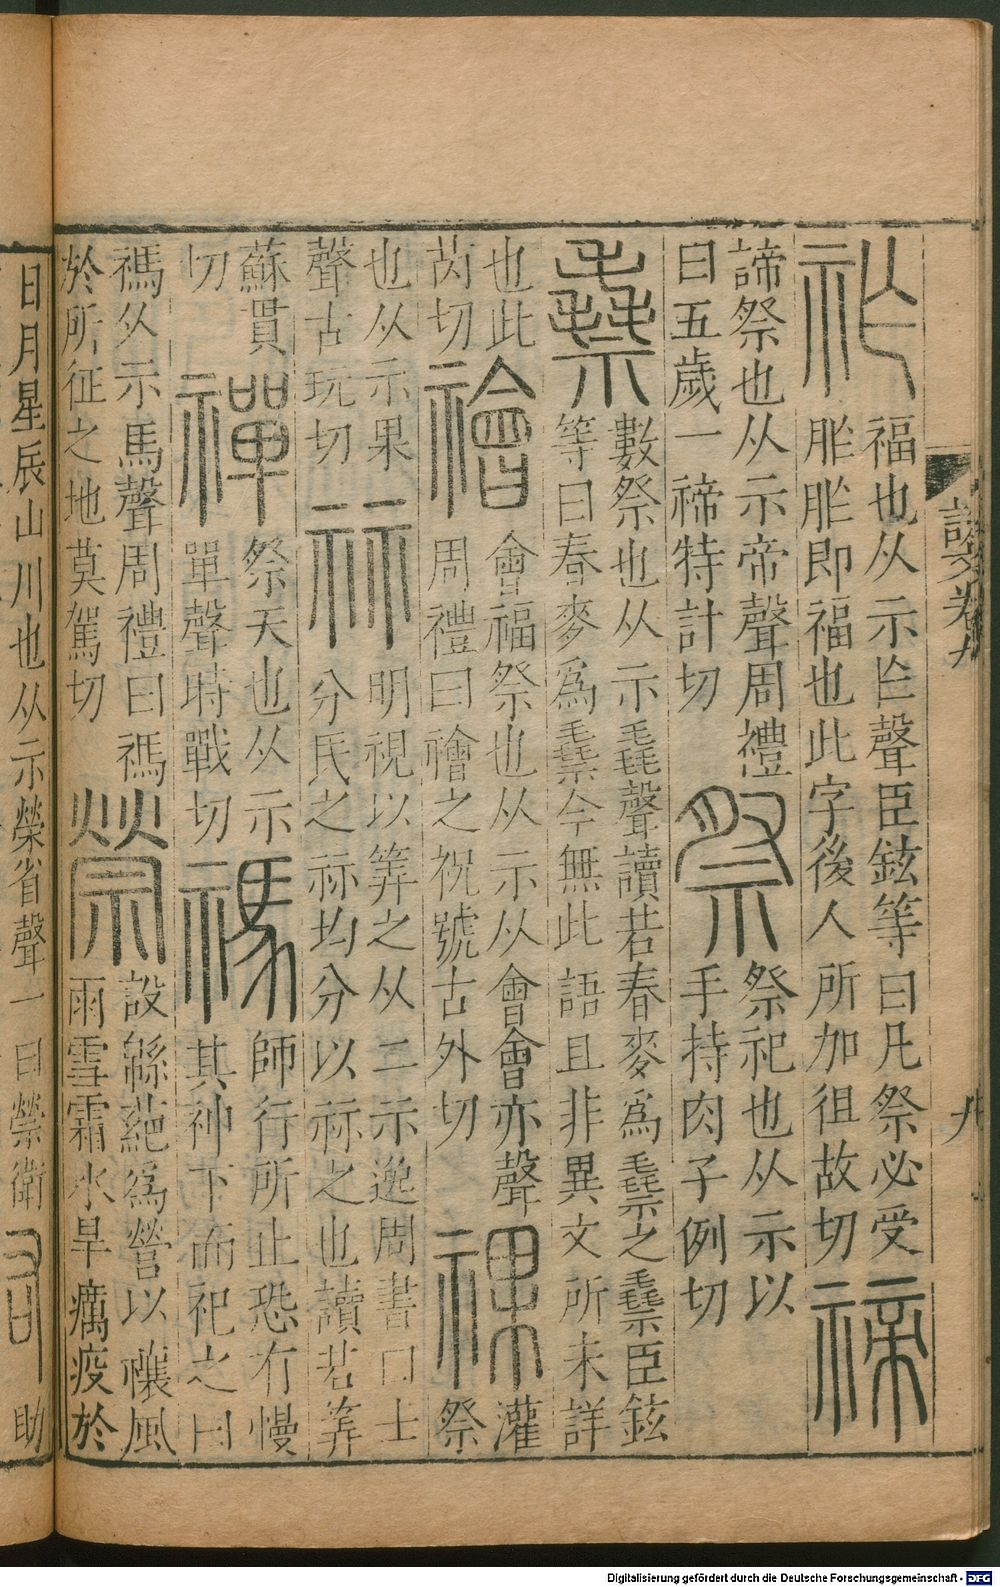 說文卷九
九
祚
福也从示乍聲臣鉉等曰凡祭必受
胙胙即福也此字後人所加徂故切
禘
諦祭也从示帝聲周禮
曰五歲一禘特計切
祭
祭祀也从示以
手持肉子例切
𥜔
數祭也从示毳聲讀若春麥爲𥜔之𥜔臣鉉
等曰春麥爲𥜔今無此語且非異文所未詳
也此
芮切
禬
會福祭也从示从會會亦聲
周禮曰禬之祝號古外切
祼
灌
祭
也从示果
聲古玩切
祘
明視以筭之从二示逸周書曰士
分民之祘均分以祘之也讀若筭
蘇貫
切
禪
祭天也从示
單聲時戰切
禡
師行所止恐有慢
其神下而祀之曰
禡从示馬聲周禮曰禡
於所征之地莫駕切
禜
設緜蕝爲營以禳風
雨雪霜水旱癘疫於
日月星辰山川也从示榮省聲一曰禜衛
助
Digitalisierung gefördert durch die Deutsche Forschungsgemeinschaft - DFG